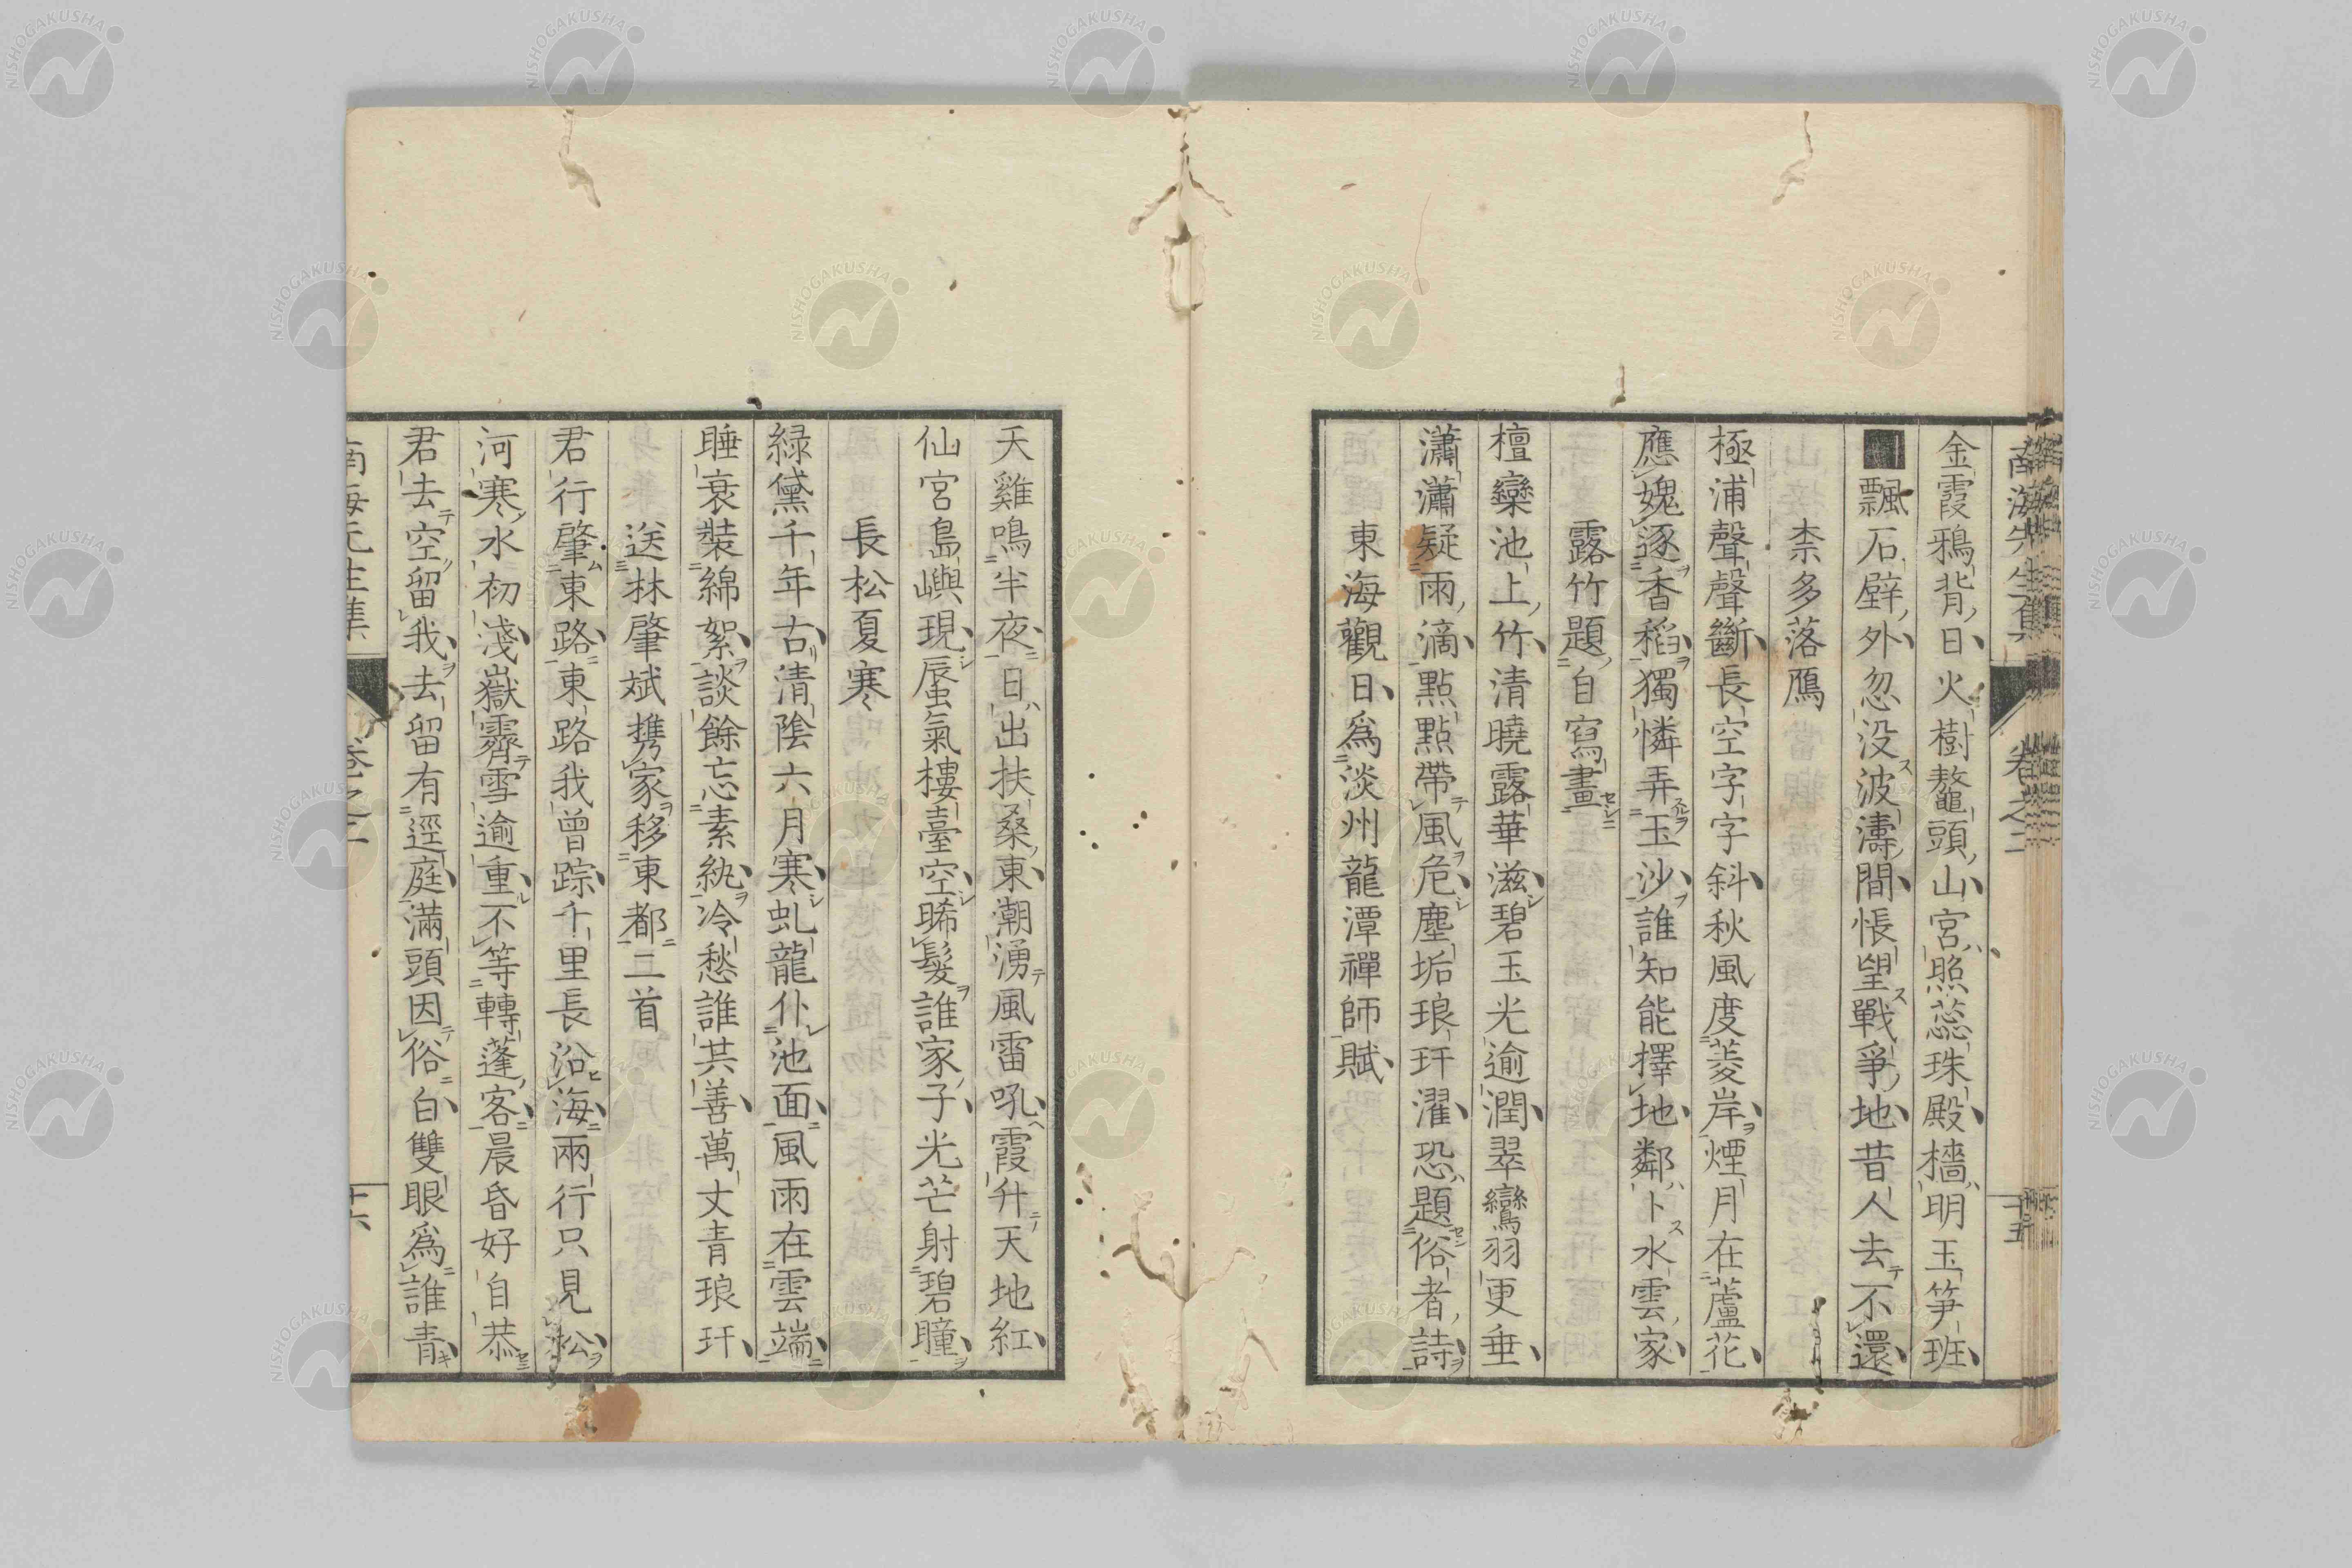 金霞鴉背日火樹鼇頭山宮照蕊珠殿檣明玉笋班
飄石壁外忽没波濤間悵望戰爭地昔人去不還
柰多落鴈
極浦聲聲斷長空字字斜秋風度菱岸煙月在蘆花
應媿逐香稻獨憐弄玉沙誰知能擇地鄰卜水雲家
露竹題自寫畫
檀欒池上竹清曉露華滋碧玉光逾潤翠鸞羽更垂
瀟瀟疑雨滴點點帶風危塵垢琅玕濯恐題俗者詩
東海觀日爲淡州龍潭禪師賦
天雞鳴半夜日出扶桑東潮湧風雷吼霞升天地紅
仙宮島嶼現蜃氣樓臺空晞髮誰家子光芒射碧瞳
長松夏寒
緑黛千年古清陰六月寒虬龍仆池面風雨在雲端
睡衰裝綿絮談餘忘素紈冷愁誰共善萬丈青琅玕
送林肇斌攜家移東都二首
君行肇東路東路我曾踪千里長沿海兩行只見松
河寒水初淺嶽霽雪逾重不等轉蓬客晨昏好自恭
君去空留我去留有逕庭滿頭因俗白雙眼爲誰青
南海先生集
卷之二
十五
十六
NISHOGAKUSHA